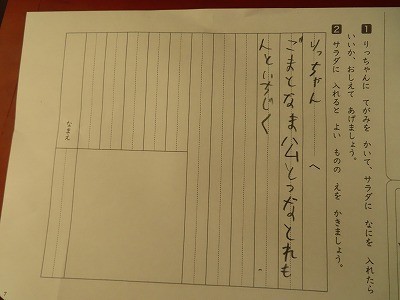 1 りっちゃんに てがみを かいて、サラダに なにを 入れたら
いいか、おしえて あげましょう。
2 サラダに 入れると よい ものの えを かきましょう。
りっちゃん へ
ごまとなまハムとつなとれも
んといちじく
なまえ
7